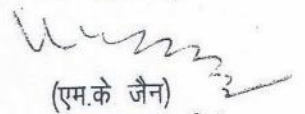 (एम.के जैन)